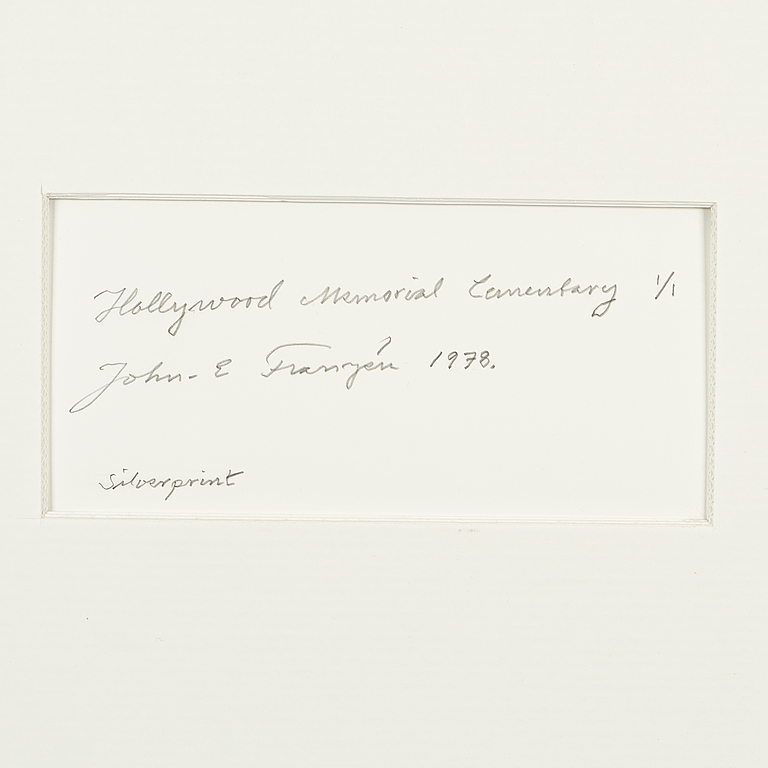 Hollywood Memorial Cementary 1/1
John-E Franzén 1978.
Silverprint